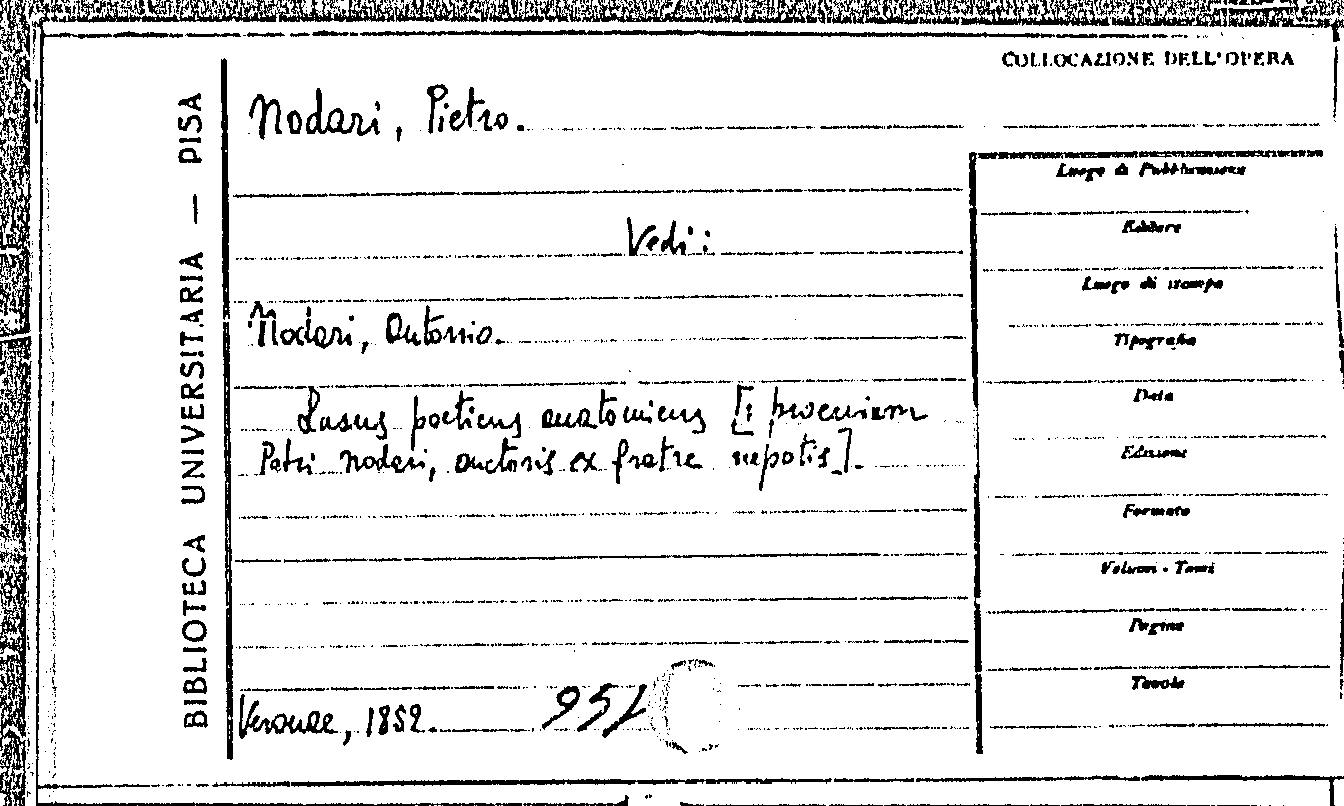 COLLOCAZIONE DELL'OPERA
BIBLIOTECA UNIVERSITARIA — PISA
Nodari, Pietro.
Vedi:
Nodari, Antonio.
Lusus poeticus anatomicus [:
Petri Nodari, auctoris ex fratre nepotis].
Veronae, 1852.
Luogo di Pubblicazione
Editore
Luogo di stampa
Tipografia
Data
Edizione
Formato
Volumi - Tomi
Pagine
Tavole